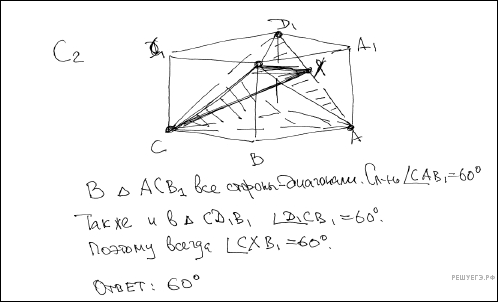 C2
D1
C1
A1
X
C
A
B
В △ ACB1 все стороны-диагонали. Сл-но ∠CAB1=60°
Также и в △ CD1B1 ∠D1CB1=60°.
Поэтому всегда ∠CXB1=60°.
Ответ: 60°
РЕШУЕГЭ.РФ